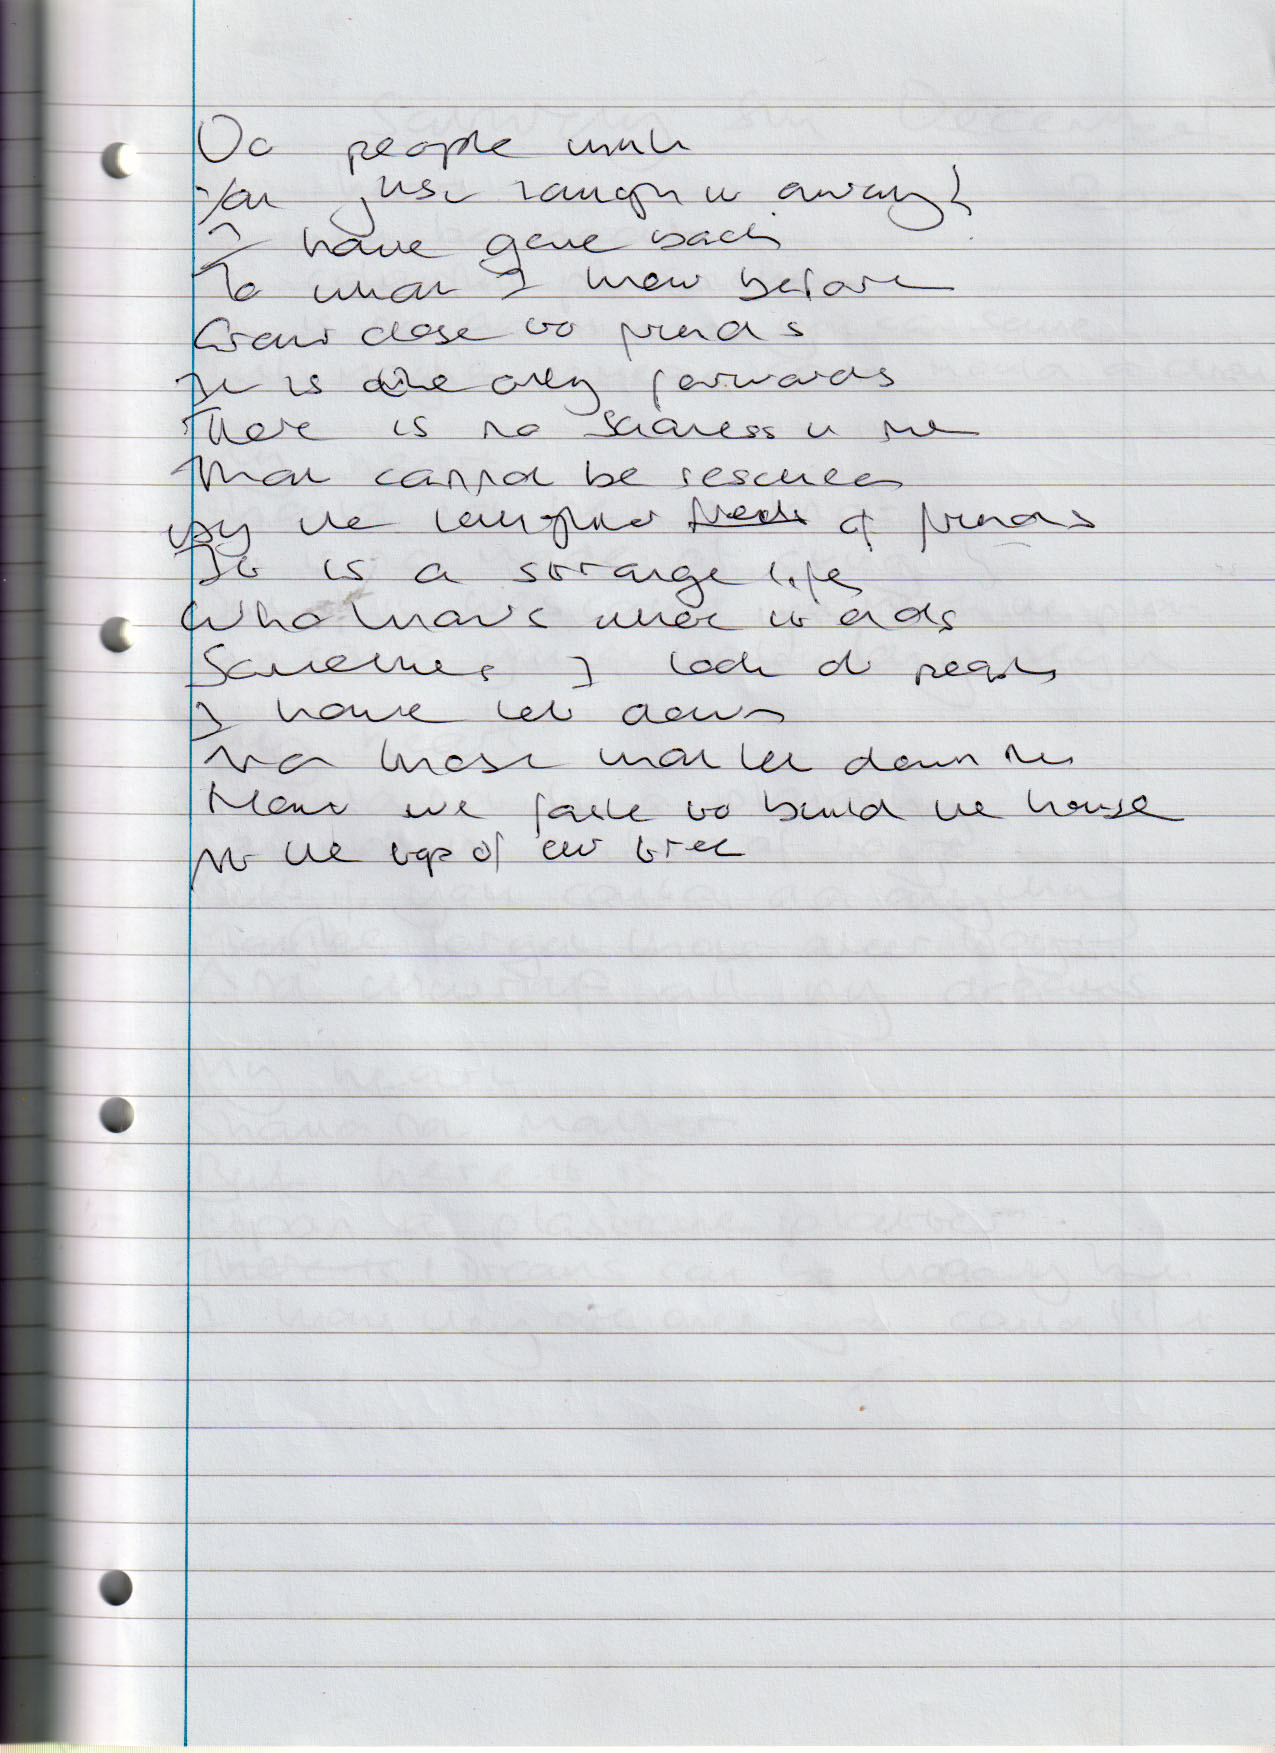 Do people think
You just laugh it away?
I have gone back
To what I knew before
Grow close to friends
It is the only forwards
There is no sadness in me
That cannot be rescued
By the laughter of friends
It is a strange life
Who knows where it ends
Sometimes I look at people
I have let down
And those that let down me
How we to build the house
At the top of our tree